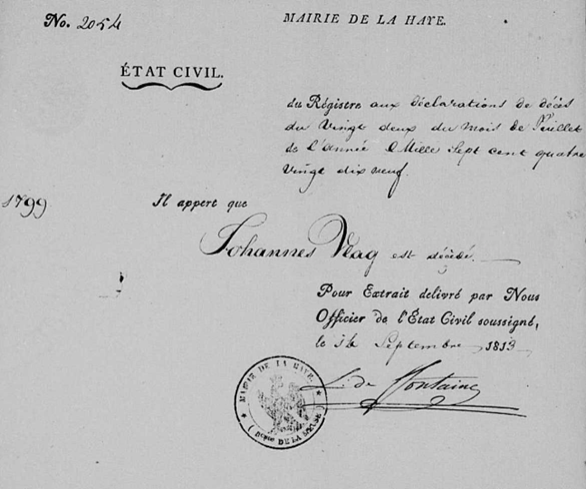 No. 2054
MAIRIE DE LA HAYE.
ÉTAT CIVIL.
du Régistre aux déclarations de décès
du Vingt deux du mois de Juillet
de l'année Mille Sept cent quatre
Vingt dix neuf.
1799
Il appert que
Johannes Vlag est décédé.
Pour Extrait délivré par Nous
Officier de l'État Civil soussigné,
le Septembre 1813
L. de Fontaine
MAIRIE DE LA HAYE.